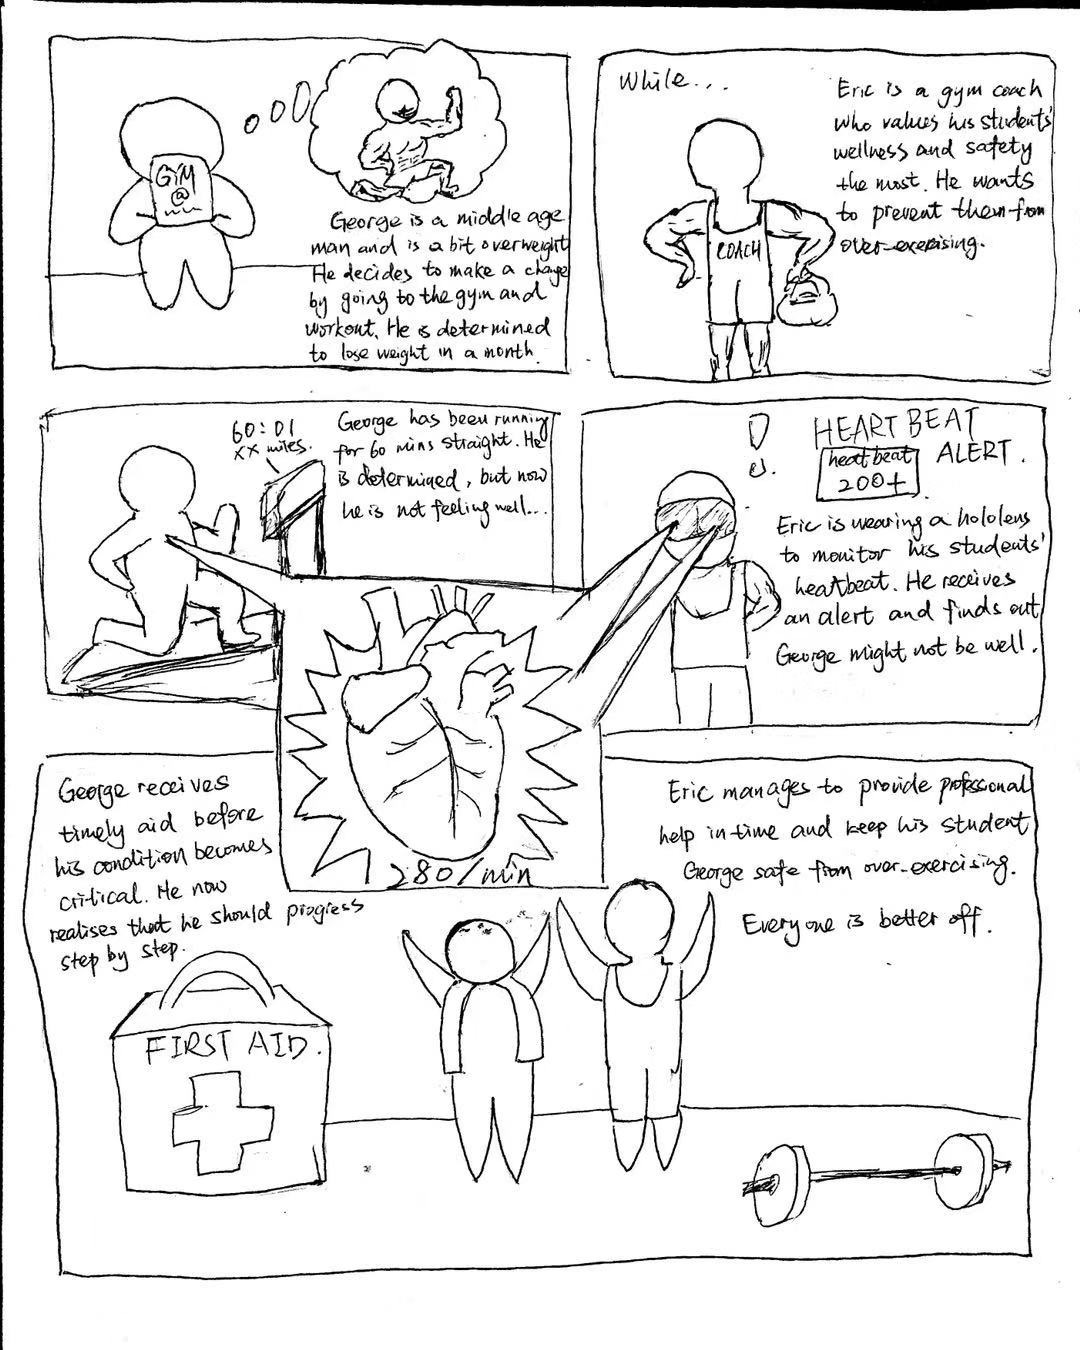 GYM
@
George is a middle age
man and is a bit overweight
He decides to make a change
by going to the gym and
workout. He is determined
to lose weight in a month.
While...
Eric is a gym coach
who values his students'
wellness and safety
the most. He wants
to prevent them from
over-exercising.
COACH
60:01
XX miles.
George has been running
for 60 mins straight. He
is determined, but now
he is not feeling well...
HEART BEAT
ALERT.
heatbeat
200+
Eric is wearing a hololens
to monitor his students'
heatbeat. He receives
an alert and finds out
George might not be well.
280/min
George receives
timely aid before
his condition becomes
critical. He now
realises that he should progress
step by step.
FIRST AID.
Eric manages to provide professional
help in time and keep his student
George safe from over-exercising.
Everyone is better off.